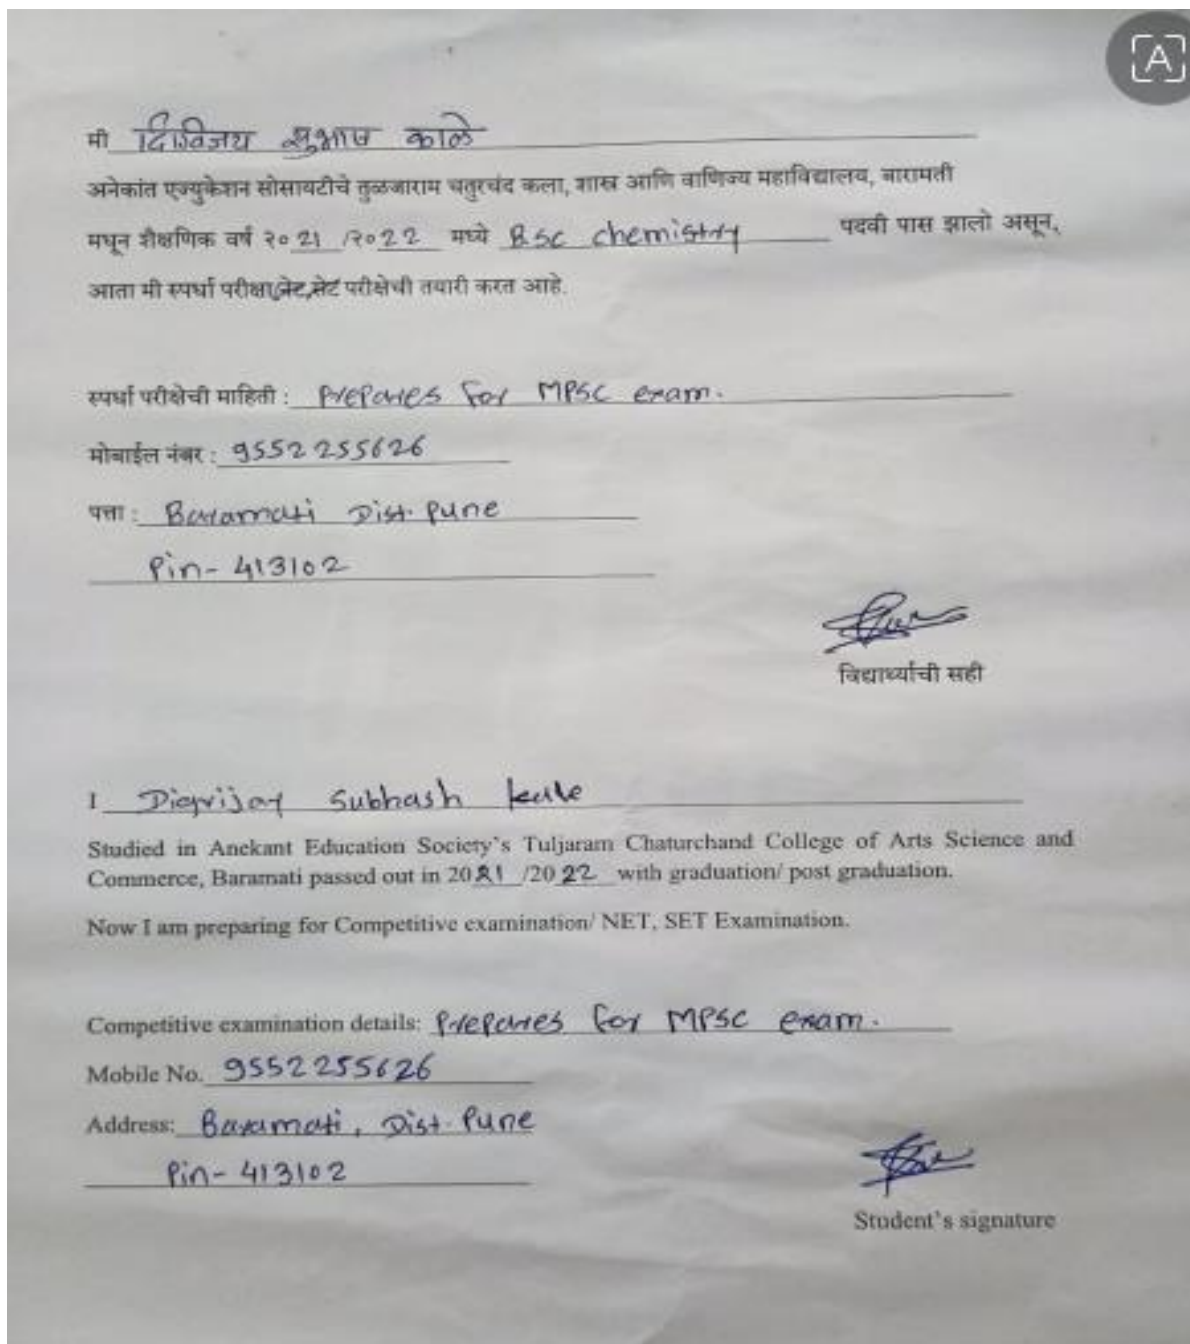 मी दिग्विजय सुभाष काळे
अनेकांत एज्युकेशन सोसायटीचे तुळजाराम चतुरचंद कला, शास्त्र आणि वाणिज्य महाविद्यालय, बारामती
मधून शैक्षणिक वर्ष २० 21 /२० 22 मध्ये BSc chemistry पदवी पास झालो असून,
आता मी स्पर्धा परीक्षा/नेट,सेट परीक्षेची तयारी करत आहे.
स्पर्धा परीक्षेची माहिती : Prepares for MPSC exam.
मोबाईल नंबर : 9552 255626
पत्ता : Baramati Dist. Pune
Pin- 413102
विद्यार्थ्याची सही
I Digvijay Subhash kale
Studied in Anekant Education Society's Tuljaram Chaturchand College of Arts Science and
Commerce, Baramati passed out in 20 21 /20 22 with graduation/ post graduation.
Now I am preparing for Competitive examination/ NET, SET Examination.
Competitive examination details: Prepares for MPSC exam.
Mobile No. 9552 255626
Address: Baramati, Dist. Pune
Pin- 413102
Student's signature